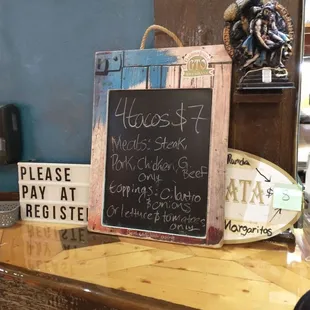 4 tacos $7
Meats: Steak,
Pork, Chicken, G Beef
only
toppings: Cilantro
& onions
Or lettuce & tomatoes
only
PLEASE
PAY AT
REGISTER
Runda
ATA
$
Margaritas